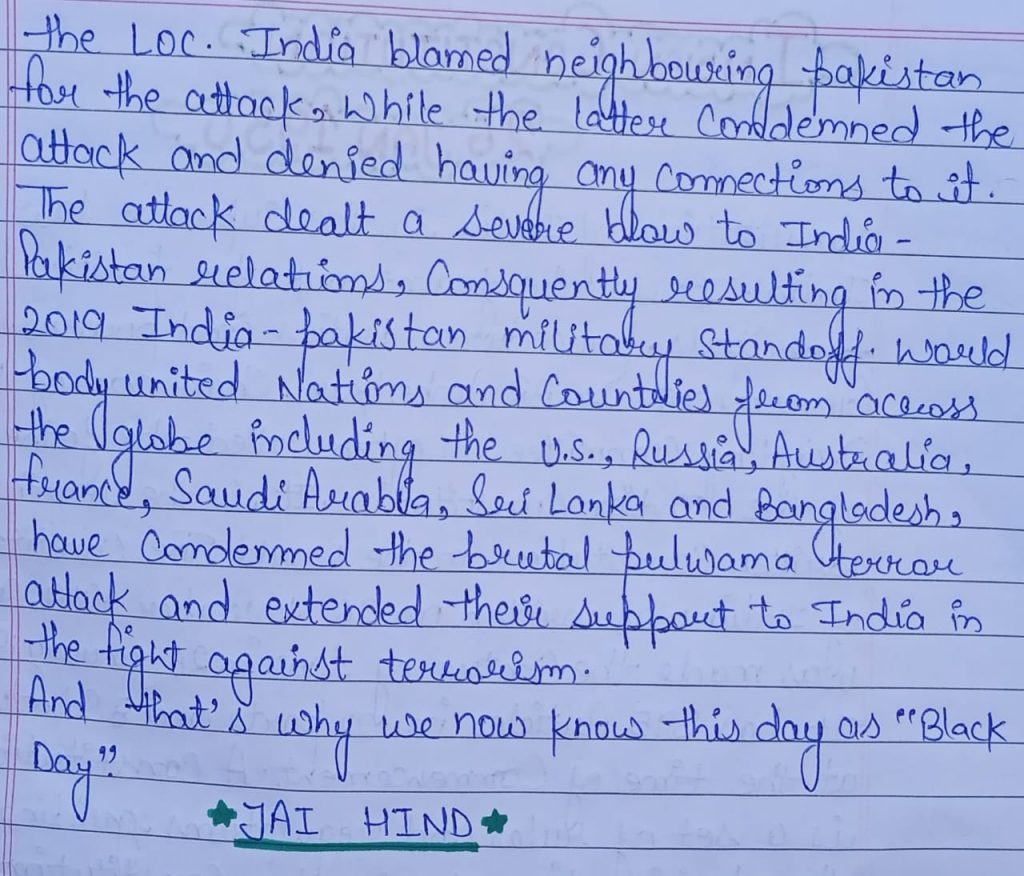 the LOC. India blamed neighbouring pakistan
for the attack, While the latter Conddemned the
attack and denied having any Connections to it.
The attack dealt a severe blow to India -
Pakistan relations, Consquently resulting in the
2019 India - pakistan military Standoff. World
body united Nations and Countries from across
the globe including the U.S., Russia, Australia,
france, Saudi Arabia, Sri Lanka and Bangladesh,
have Condemmed the brutal pulwama terror
attack and extended their support to India in
the fight against terrorism.
And that's why we now know this day as "Black
Day".
★ JAI HIND ★